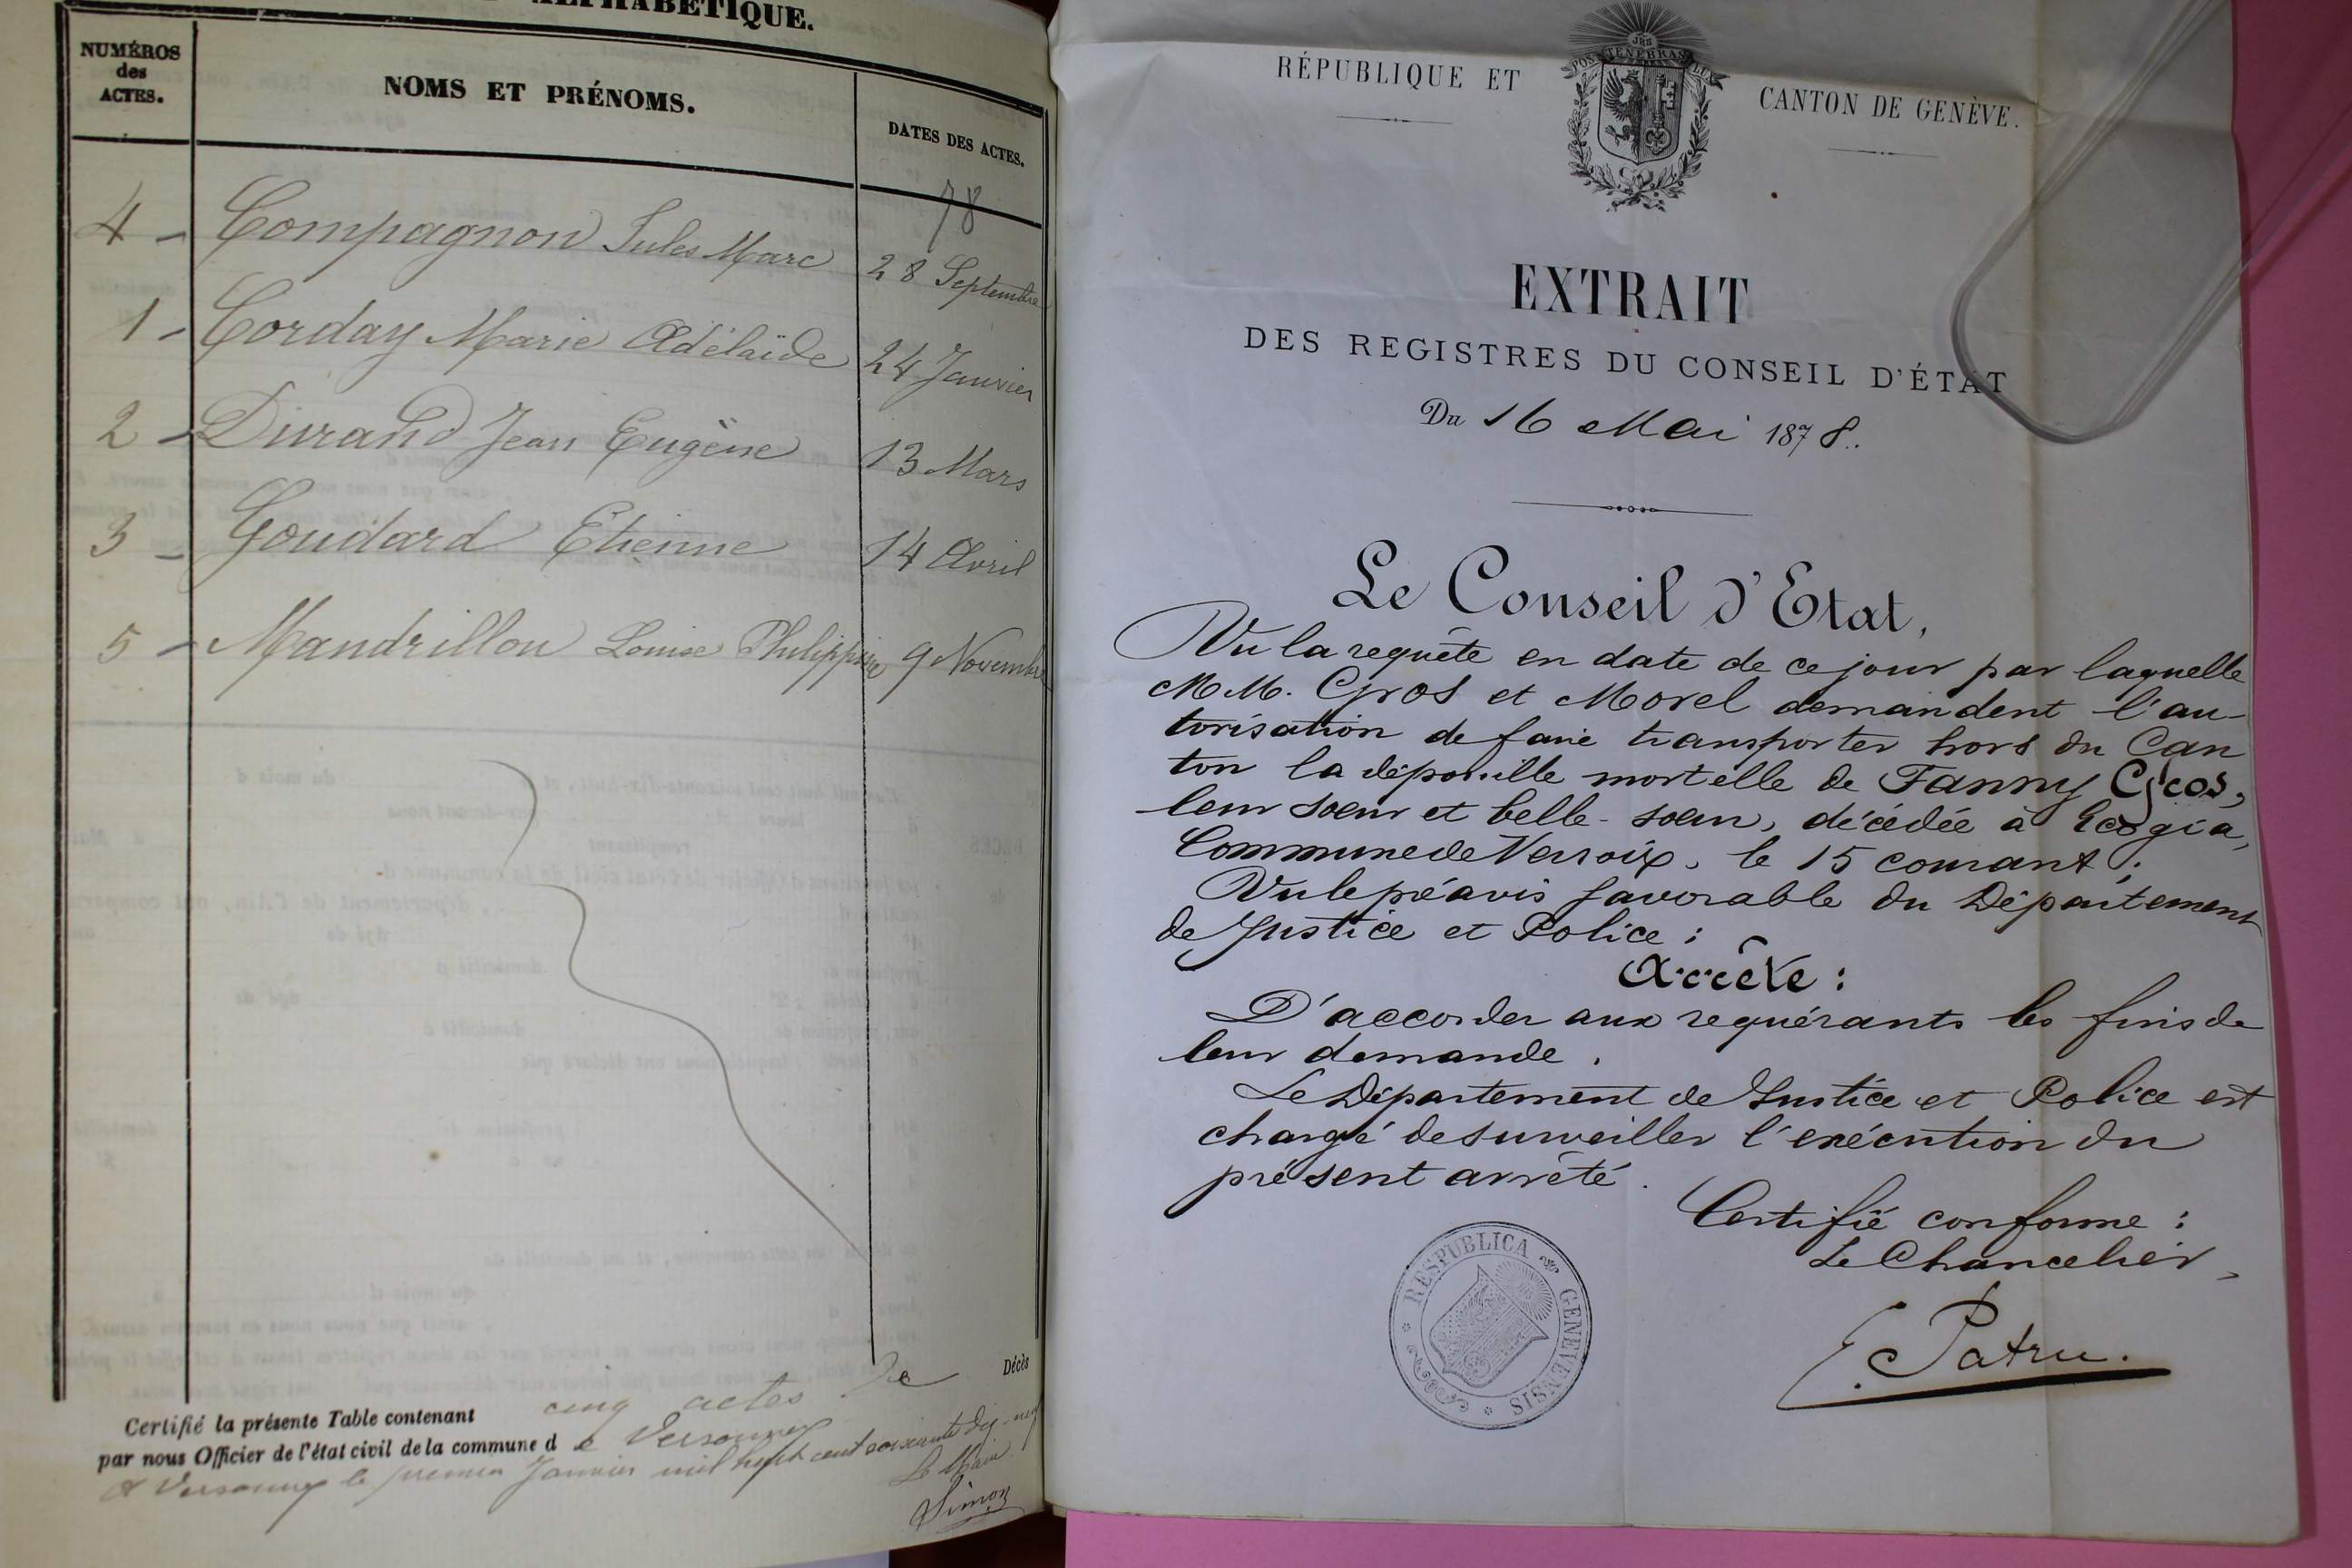 ALPHABÉTIQUE.
NUMÉROS
des
ACTES.
NOMS ET PRÉNOMS.
DATES DES ACTES.
78
4 - Compagnon Jules Marc 28 Septembre
1 - Corday Marie Adélaïde 24 Janvier
2 - Durand Jean Eugène 13 Mars
3 - Goudard Etienne 14 Avril
5 - Mandrillon Louise Philippine 9 Novembre
Certifié la présente Table contenant cinq actes de Décès
par nous Officier de l'état civil de la commune d e Versonnex
A Versonnex le premier Janvier mil huit cent soixante dix-neuf
Le Maire
Simon
RÉPUBLIQUE ET CANTON DE GENÈVE.
JHS
POST TENEBRAS LUX
EXTRAIT
DES REGISTRES DU CONSEIL D'ÉTAT
Du 16 Mai 1878.
Le Conseil d'Etat,
Vu la requête en date de ce jour par laquelle
MM. Gros et Morel demandent l'au-
torisation de faire transporter hors du Can
ton la dépouille mortelle de Fanny Gros,
leur soeur et belle-soeur, décédée à Ecogia,
Commune de Versoix, le 15 courant;
Vu le préavis favorable du Département
de Justice et Police;
Arrête:
D'accorder aux requérants les fins de
leur demande.
Le Département de Justice et Police est
chargé de surveiller l'exécution du
présent arrêté.
Certifié conforme:
Le Chancelier,
E. Patru.
RESPUBLICA GENEVENSIS